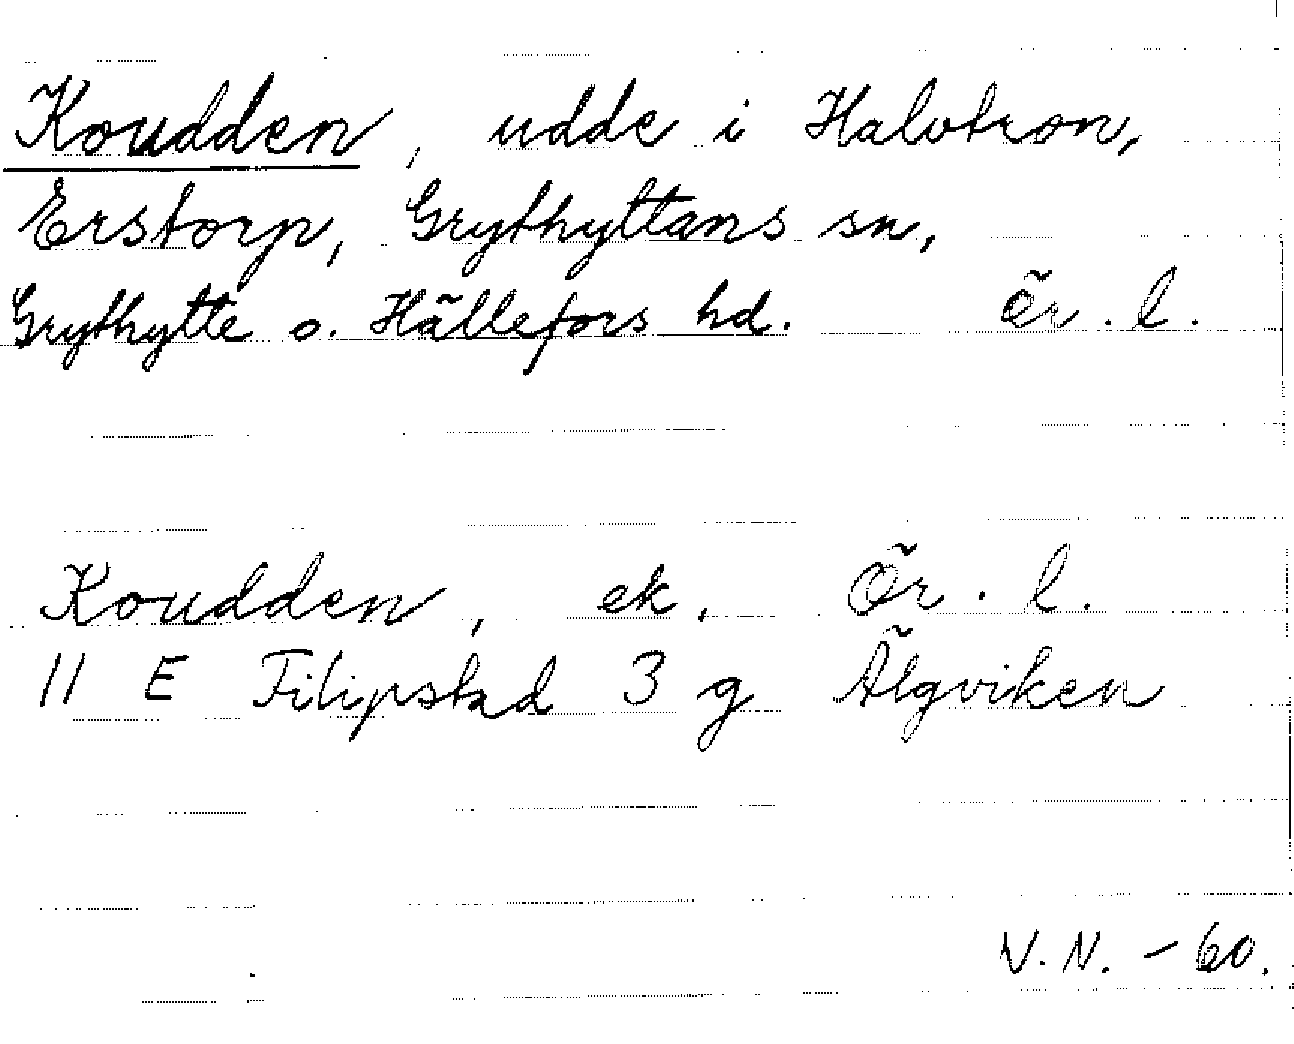 Koudden, udde i Halvtron,
Erstorp, Grythyttans sn,
Grythytte o. Hällefors hd. Ör. l.
Koudden, ek. Ör. l.
11 E Filipstad 3 g Älgviken
V. N. - 60.